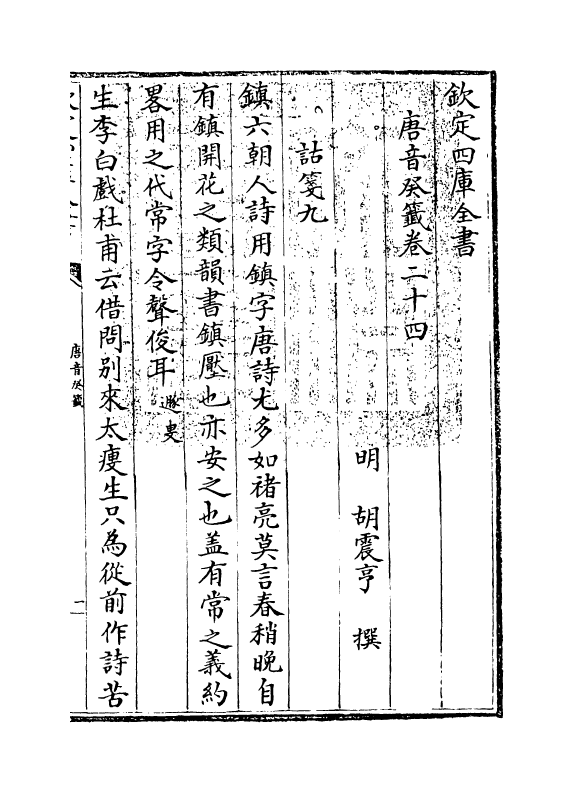 欽定四庫全書
唐音癸籤卷二十四
明 胡震亨 撰
詁箋九
鎮六朝人詩用鎮字唐詩尤多如褚亮莫言春稍晚自
有鎮開花之類韻書鎮壓也亦安之也盖有常之義約
畧用之代常字令聲俊耳 遯叟
生李白戲杜甫云借問别來太瘦生只為從前作詩苦
唐音癸籤